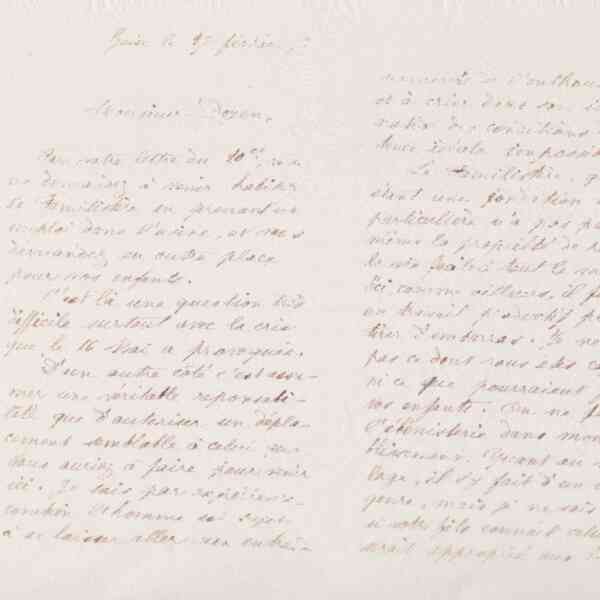 Guise le 15 février
Monsieur Doyen,
Par votre lettre du 10 ct, vous
me demandez à venir habiter
le Familistère en prenant un
emploi dans l'usine, et vous
demandez en outre place
pour vos enfants.
C'est là une question très
difficile surtout avec la crise
que le 16 Mai a provoquée.
D'un autre côté c'est assu-
mer une véritable responsabi-
lité que d'autoriser un dépla-
cement semblable à celui que
vous auriez à faire pour venir
ici. Je sais par expérience
combien l'homme est sujet
à se laisser aller aux entraî-
nements de l'enthou
et à créer dont son i
des conditions
tence sociale impossib
Le Familistère, q
étant une fondation
particulière n'a pas p
même la propriété de r
la vie facile à tout le mo
Ici comme ailleurs, il f
un travail productif p
tirer d'embarras. Je ne
pas ce dont vous êtes ca
ni ce que pourraient f
vos enfants. On ne f
l'ébénisterie dans mon
blissement. Quant au
lage, il s'y fait d'un
genre, mais je ne sais
si votre fils connaît celui
serait approprié aux